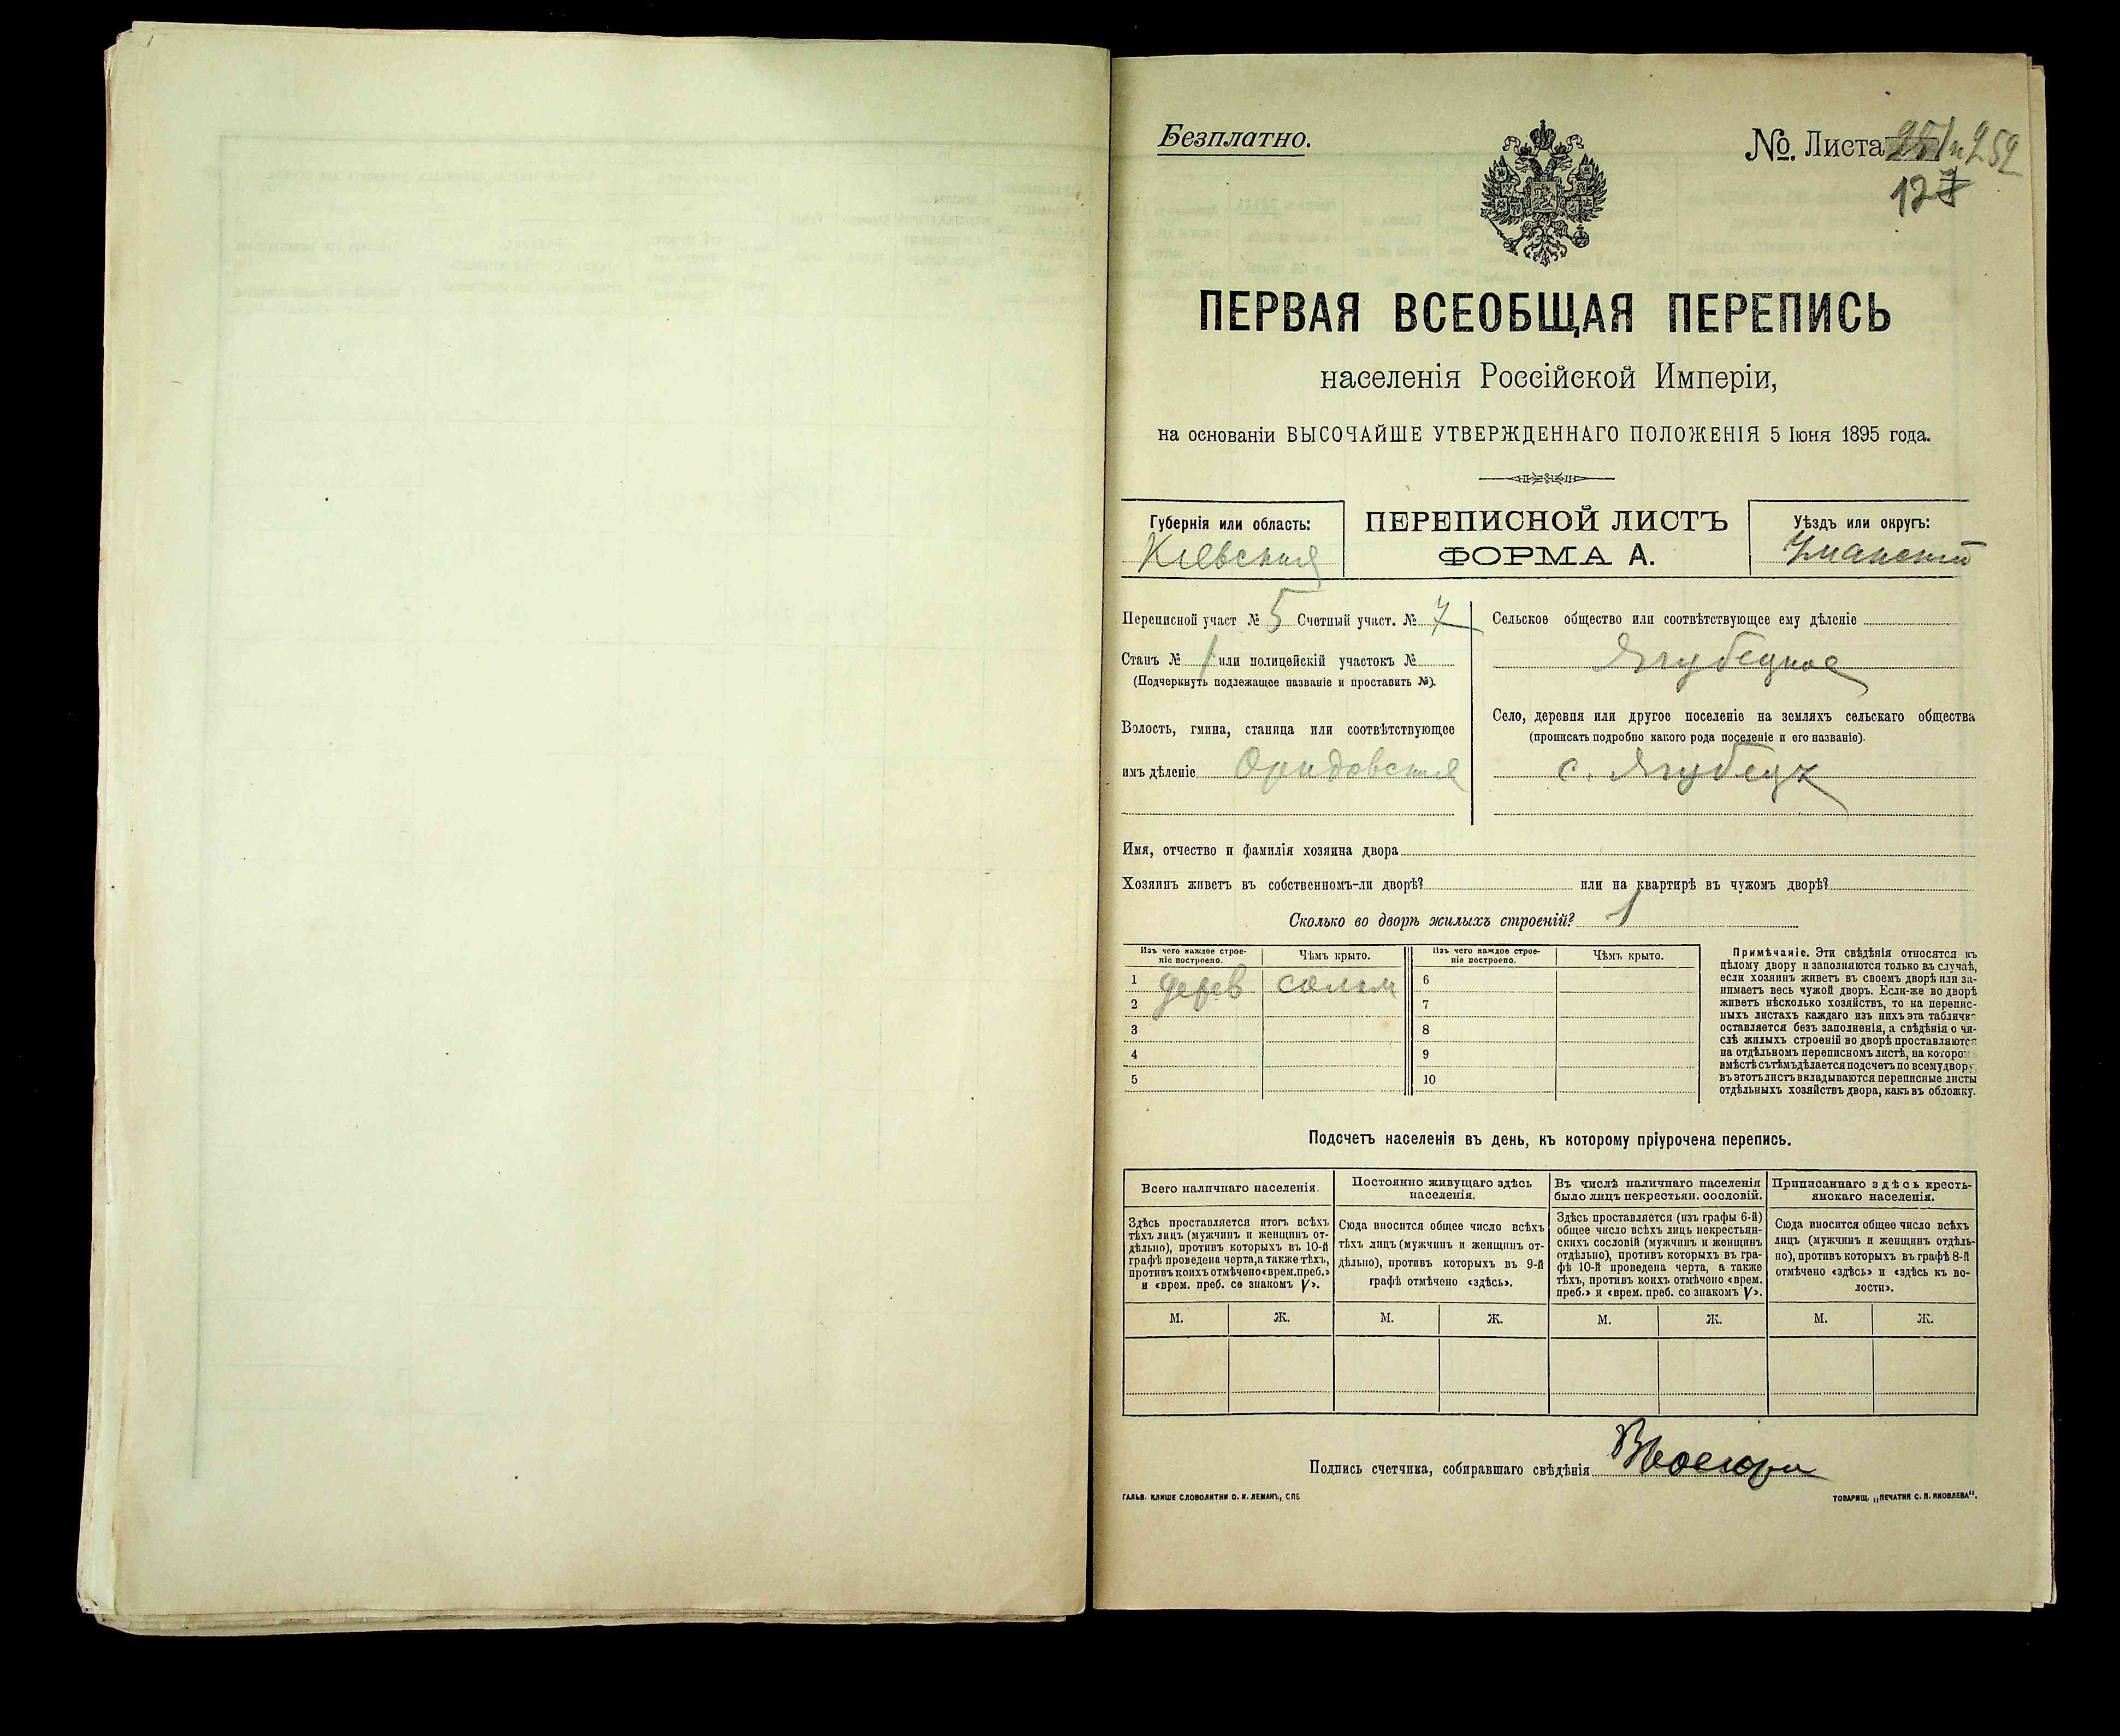 Безплатно.
№. Листа 251 и 252
127
ПЕРВАЯ ВСЕОБЩАЯ ПЕРЕПИСЬ
населенія Россійской Имперіи,
на основаніи ВЫСОЧАЙШЕ УТВЕРЖДЕННАГО ПОЛОЖЕНІЯ 5 Іюня 1895 года.
Губернія или область:
Кіевская
ПЕРЕПИСНОЙ ЛИСТЪ
ФОРМА А.
Уѣздъ или округъ:
Уманскій
Переписной участ № 5 Счетный участ. № 7
Станъ № 1 или полицейскій участокъ №
(Подчеркнуть подлежащее названіе и проставить №).
Волость, гмина, станица или соотвѣтствующее
имъ дѣленіе
Сельское общество или соотвѣтствующее ему дѣленіе
Ягубецкое
Село, деревня или другое поселеніе на земляхъ сельскаго общества
(прописать подробно какого рода поселеніе и его названіе).
с. Ягубецъ
Имя, отчество и фамилія хозяина двора
Хозяинъ живетъ въ собственномъ-ли дворѣ? или на квартирѣ въ чужомъ дворѣ?
Сколько во дворѣ жилыхъ строеній? 1
Изъ чего каждое строе-
ніе построено.
Чѣмъ крыто.
Изъ чего каждое строе-
ніе построено.
Чѣмъ крыто.
1 дерев солом 6
2 7
3 8
4 9
5 10
Примѣчаніе. Эти свѣдѣнія относятся къ
цѣлому двору и заполняются только въ случаѣ,
если хозяинъ живетъ въ своемъ дворѣ или за-
нимаетъ весь чужой дворъ. Если-же во дворѣ
живетъ нѣсколько хозяйствъ, то на перепис-
ныхъ листахъ каждаго изъ нихъ эта табличка
оставляется безъ заполненія, а свѣдѣнія о чи-
слѣ жилыхъ строеній во дворѣ проставляются
на отдѣльномъ переписномъ листѣ, на котором
вмѣстѣ съ тѣмъ дѣлается подсчетъ по всему двору
въ этотъ листъ вкладываются переписные листы
отдѣльныхъ хозяйствъ двора, какъ въ обложку.
Подсчетъ населенія въ день, къ которому пріурочена перепись.
Всего наличнаго населенія.
Здѣсь проставляется итогъ всѣхъ
тѣхъ лицъ (мужчинъ и женщинъ от-
дѣльно), противъ которыхъ въ 10-й
графѣ проведена черта, а также тѣхъ,
противъ коихъ отмѣчено «врем. преб.»
и «врем. преб. со знакомъ V».
М. Ж.
Постоянно живущаго здѣсь
населенія.
Сюда вносится общее число всѣхъ
тѣхъ лицъ (мужчинъ и женщинъ от-
дѣльно), противъ которыхъ въ 9-й
графѣ отмѣчено «здѣсь».
М. Ж.
Въ числѣ наличнаго населенія
было лицъ некрестьян. сословій.
Здѣсь проставляется (изъ графы 6-й)
общее число всѣхъ лицъ некрестьян-
скихъ сословій (мужчинъ и женщинъ
отдѣльно), противъ которыхъ въ гра-
фѣ 10-й проведена черта, а также
тѣхъ, противъ коихъ отмѣчено «врем.
преб.» и «врем. преб. со знакомъ V».
М. Ж.
Приписаннаго здѣсь кресть-
янскаго населенія.
Сюда вносится общее число всѣхъ
лицъ (мужчинъ и женщинъ отдѣль-
но), противъ которыхъ въ графѣ 8-й
отмѣчено «здѣсь» и «здѣсь къ во-
лости».
М. Ж.
Подпись счетчика, собиравшаго свѣдѣнія
ГАЛЬВ. КЛИШЕ СЛОВОЛИТНИ О. И. ЛЕМАНЪ, СПБ
ТОВАРИЩ. „ПЕЧАТНЯ С. П. ЯКОВЛЕВА".